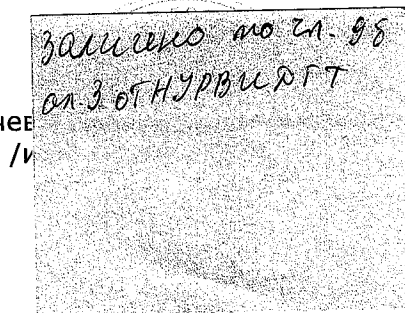 Заличено по чл. 9б
ал. 3 от НУРВИДГТ
чев
/и